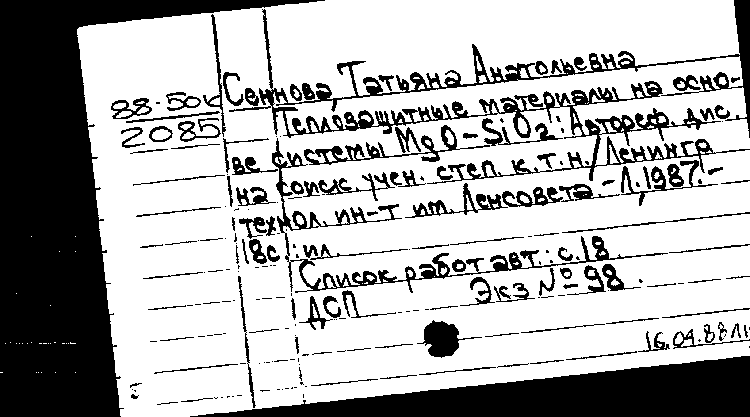 88-50к
2085
Сеннова, Татьяна Анатольевна
Теплозащитные материалы на осно-
ве системы MgO-SiO2: Автореф. дис.
на соиск. учен. степ. к.т.н./Ленингр
технол. ин-т им. Ленсовета.-Л.,1987.-
18с.: ил.
Список работ авт.: с.18.
ДСП Экз № 98.
16.04.88